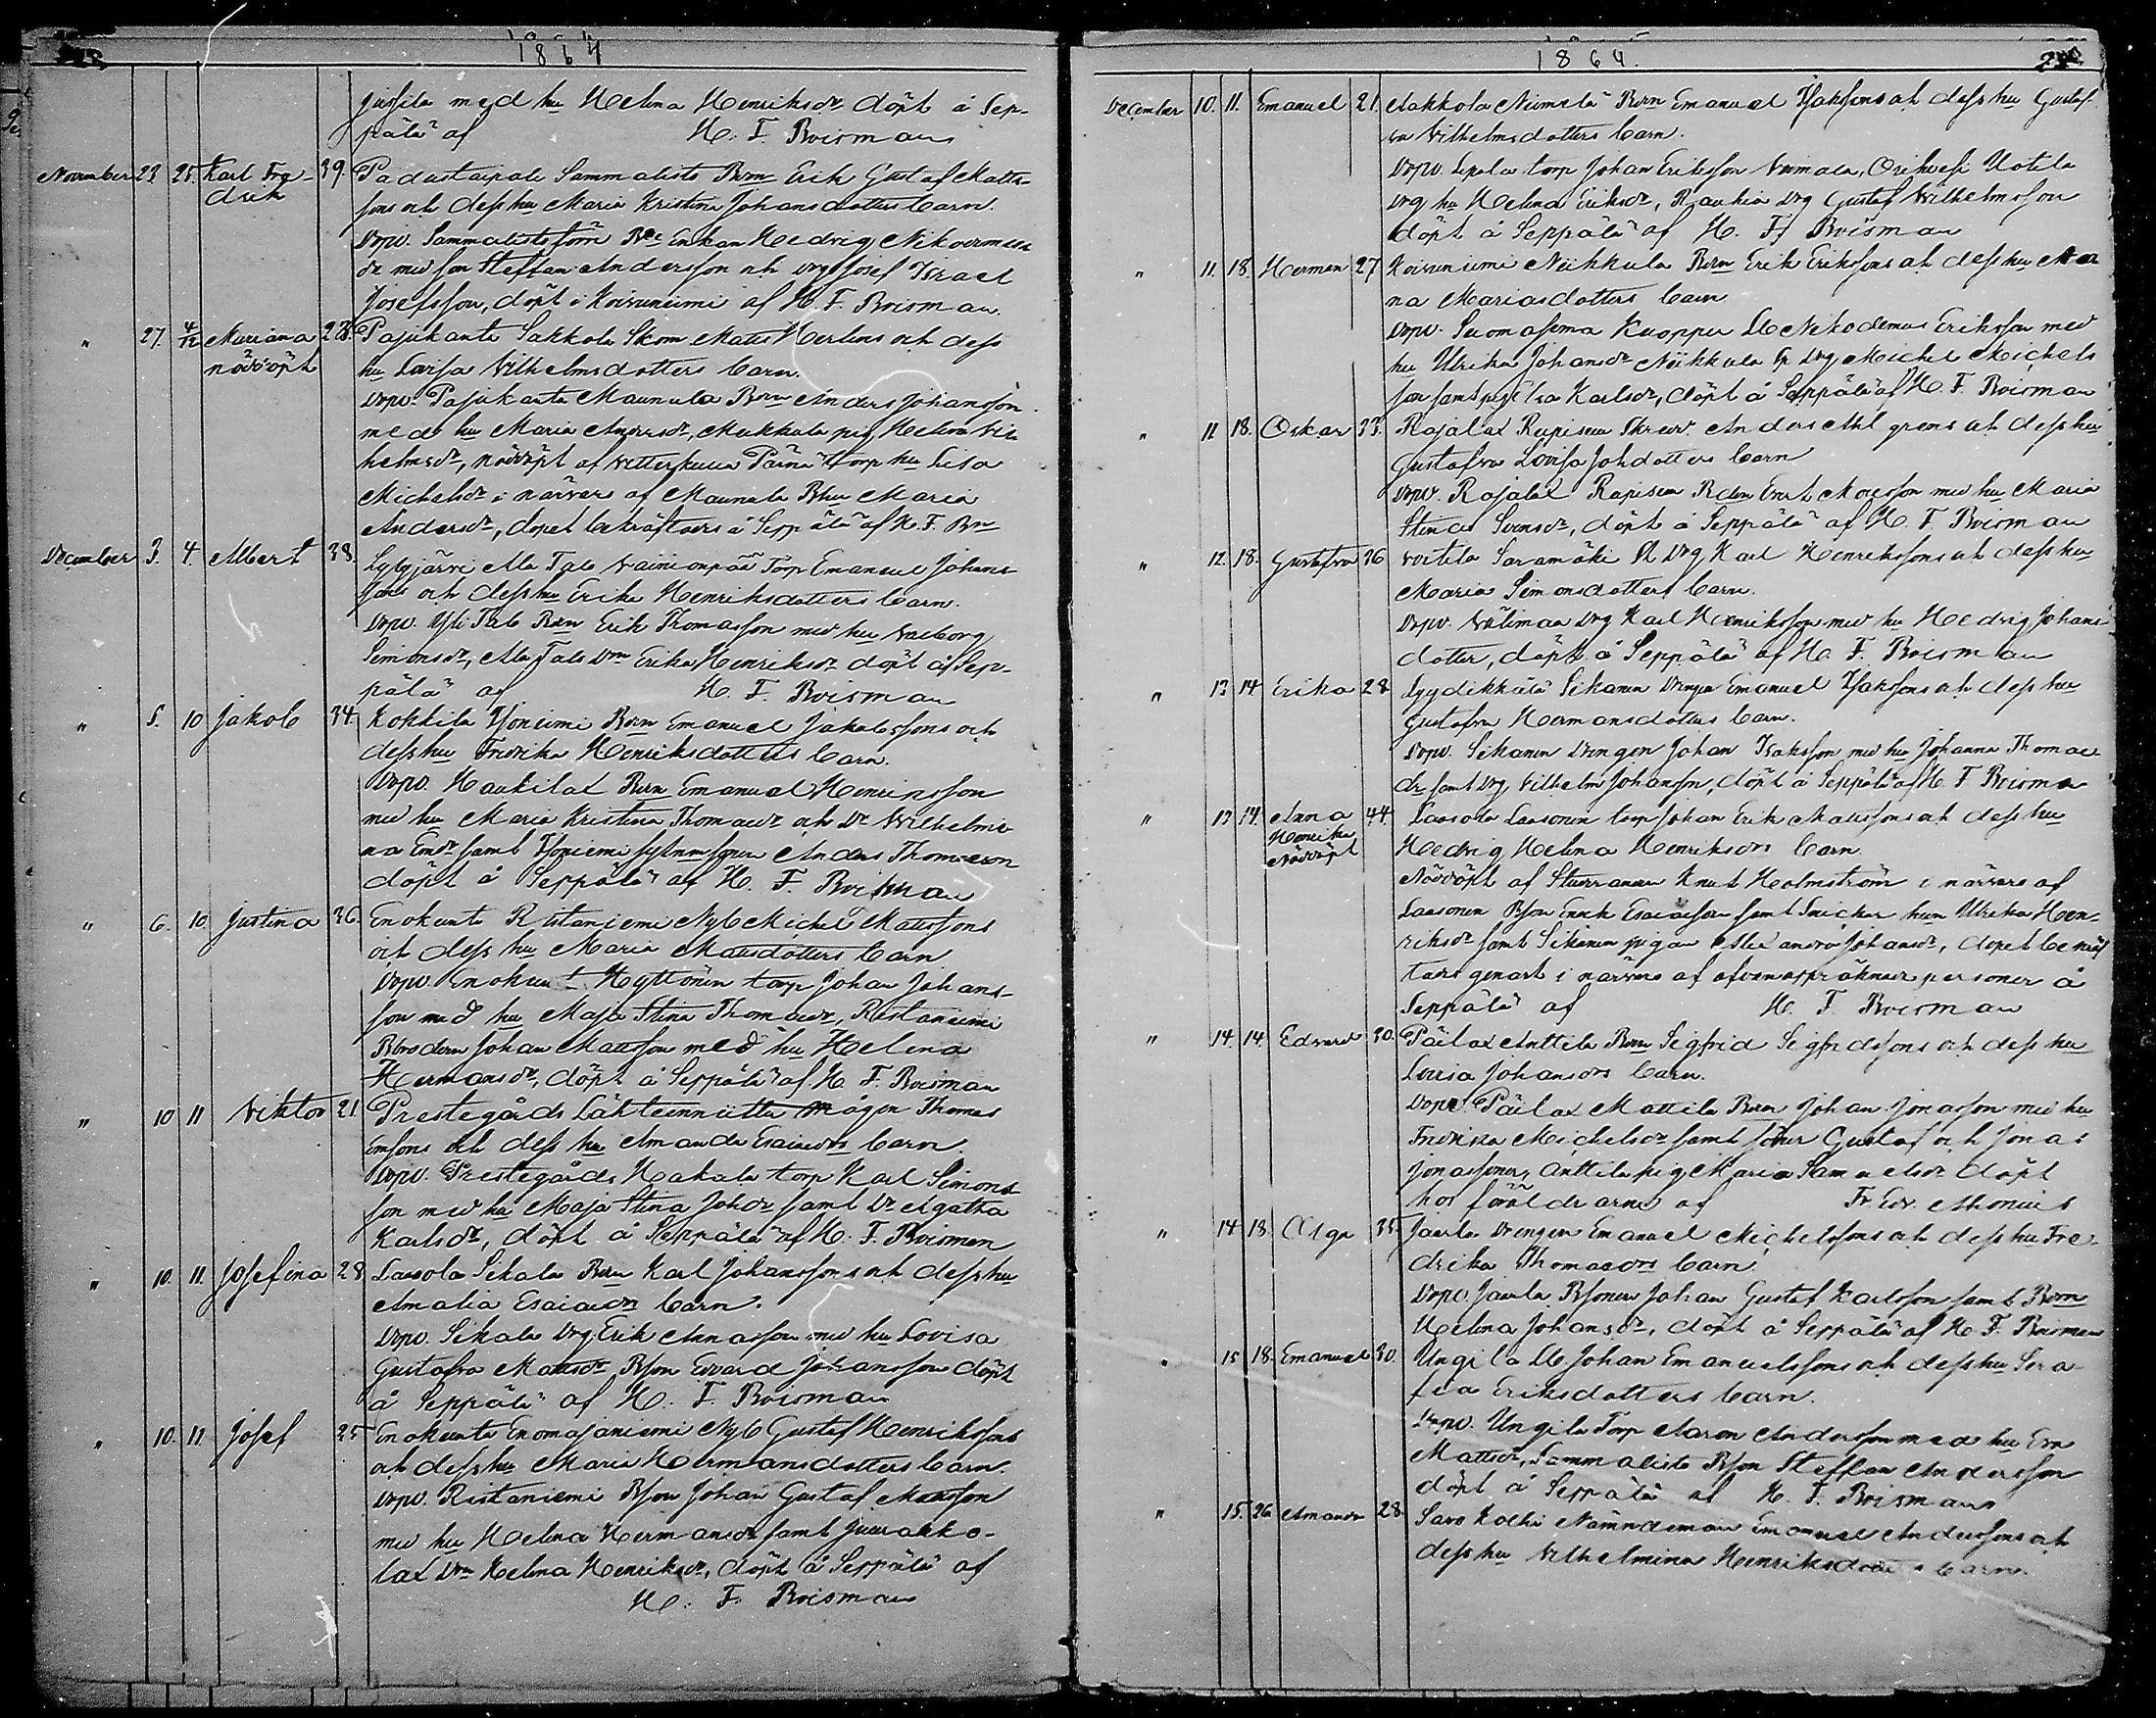 1864
Jussila med hu Helena Henriksdr döpt å Sep-
pälä af H. F. Boisman
November 23. 25. Karl Fre- 39. Padastaipale Sammalisto Bdn Erik Gustaf Matts-
drik sons och dess hu Maria Kristina Johansdotters barn.
Dopv. Sammalisto förra Enkan Hedvig Nikodemus
dr med son Steffan Andersson och drg Josef Israel
Josefsson, döpt i Koivuniemi af H. F. Boisman
" 27. 4/12 Mariana 28. Pajukanta Sakkola Skom Matts Merlins och dess
nöddöpt hu Lovisa Vilhelmsdotters barn.
Dopv. Pajukanta Maunula Bdn Anders Johansson
med hu Maria Andersdr, Mukkala pig. Helena Vil
helmsdr, nöddöpt af Torp hu Lisa
Michelsdr i närvaro af Maunula Bhu Maria
Andersdr, dopet bekräftades å Seppälä af H. F. Bn
December 3. 4. Albert 38. Sylvjärvi Ala Talo Väinionpää Torp Emanuel Johans
sons och dess hu Erika Henriksdotters barn.
Dopv. Yli Talo Bdn Erik Thomasson med hu Valborg
Simonsdr, Ala Talo Dm Erika Henriksdr döpt å Sep-
pälä af H. F. Boisman
" 5. 10 Jakob 34. Kokkila Bdn Emanuel Jakobssons och
dess hu Fredrika Henriksdotters barn.
Dopv. Haukilax Bdn Emanuel Henriksson
med hu Maria Kristina Thomasdr och Dr Wilhelmi-
na Emdr samt Anders Thomasson
döpt å Seppälä af H. F. Boisman
" 6. 10. Justina 36. Enokunta Ristaniemi Nyb Michel Mattssons
och dess hu Maria Mattsdotters barn
Dopv. Enokunta Hyttönen torp Johan Johans-
son med hu Maja Stina Thomasdr, Ristaniemi
Bbrodern Johan Mattsson med hu Helena
Hermansdr, döpt å Seppälä af H. F. Boisman
" 10 11 Viktor 21 Prestegårds Lähteenniitta Mågen Thomas
Emsons och dess hu Amanda Esaiasdrs barn.
Dopv. Prestegårds Hakala torp Karl Simons
son med hu Maja Stina Johdr samt Dr Agatha
Karlsdr, döpt å Seppälä af H. F. Boisman
" 10. 11. Josefina 28. Lassola Sikala Bdn Karl Johanssons och dess hu
Amalia Esaiasdrs barn.
Dopv. Sikala Drg Erik Annasson med hu Lovisa
Gustafva Mattsdr Bson Edvard Johansson döpt
å Seppälä af H. F. Boisman
" 10. 11. Josef 25 Enokunta Enomajaniemi Nyb Gustaf Henrikssons
och dess hu Maria Hermansdotters barn.
Dopv. Ristaniemi Bson Johan Gustaf Mattsson
med hu Helena Hermansdr samt Juurakko-
lax Dm Helena Henriksdr, döpt å Seppälä af
H. F. Boisman
1864.
December 10. 11. Emanuel 21. Sakkola Niemelä Bdn Emanuel Isakssons och dess hu Gustaf-
va Vilhelmsdotters barn.
Dopv. torp Johan Eriksson Orihvesi Uotila
Drg hu Helena Eriksdr, Rauhia Drg Gustaf Wilhelmsson
döpt å Seppälä af H. F. Boisman
" 11. 18. Herman 27 Koivuniemi Nikkula Bdn Erik Erikssons och dess hu An
na Mariasdotters barn
Dopv. Suomasema Kuoppa Nikodemus Eriksson med
hu Ulrika Johansdr Nikkula Drg Michel Michels
son samt pig Elsa Karlsdr, döpt å Seppälä af H. F. Boisman
" 11 18. Oskar 33. Rajalax Rapiseva Skrädd. Anders Ahlgrens och dess hu
Gustafva Lovisa Johdotters barn
Dopv. Rajalax Rapiseva Bdn Evert Mosesson med hu Maria
Stina Svensdr, döpt å Seppälä af H. F. Boisman
" 12. 18. Gustafva 36 Voitila Saramäki Drg Karl Henrikssons och dess hu
Maria Simonsdotters barn.
Dopv. Välimaa Drg Karl Henriksson med hu Hedvig Johans-
dotter, döpt å Seppälä af H. F. Boisman
" 13 14 Erika 28 Syydikkälä Sikanen Drengen Emanuel Isakssons och dess hu
Gustafva Hermansdotters barn.
Dopv. Sikanen Drengen Johan Isaksson med hu Johanna Thomas-
dr samt Drg Vilhelm Johansson, döpt å Seppälä af H. F. Boisman
" 13 14. Anna 44. Lassola Lassonen torp Johan Erik Mattssons och dess hu
Henrika Hedvig Helena Henriksdrs barn
Nöddöpt Nöddöpt af Knut Holmström i närvaro af
Lassonen Bson Enok Esaiasson samt Snickar hun Ulrika Hen-
riksdr samt Sikanen pigan Alexandra Johansdr, dopet bekräf
tades genast i närvaro af ofvanuppräknade personer å
Seppälä af H. F. Boisman
" 14. 14. Edvard 30. Päilax Anttila Bdn Sigfrid Sigfridssons och dess hu
Lovisa Johansdrs barn.
Dopv. Päilax Mattila Bdn Johan Jonasson med hu
Fredrika Michelsdr samt söner Gustaf och Jonas
Jonassöner, Anttila pig Maria Samuelsdr döpt
hos föräldrarne af Fr. Edv. Monius
" 14 18. Olga 35. Jaula Drengen Emanuel Michelssons och dess hu Fre-
drika Thomasdrs barn
Dopv. Jaula Bsonen Johan Gustaf Karlsson samt Bdm
Helena Johansdr, döpt å Seppälä af H. F. Boisman
" 15 18. Emanuel 30. Ungila Johan Emanuelssons och dess hu Sera-
fia Eriksdotters barn.
Dopv. Ungila Torp Aaron Andersson med hu Eva
Mattsdr, Sammalisto Bson Steffan Andersson
döpt å Seppälä af H. F. Boisman
" 15. 26 Amanda 28. Savo Koski Nämndeman Emanuel Anderssons och
dess hu Vilhelmina Henriksdotters barn.